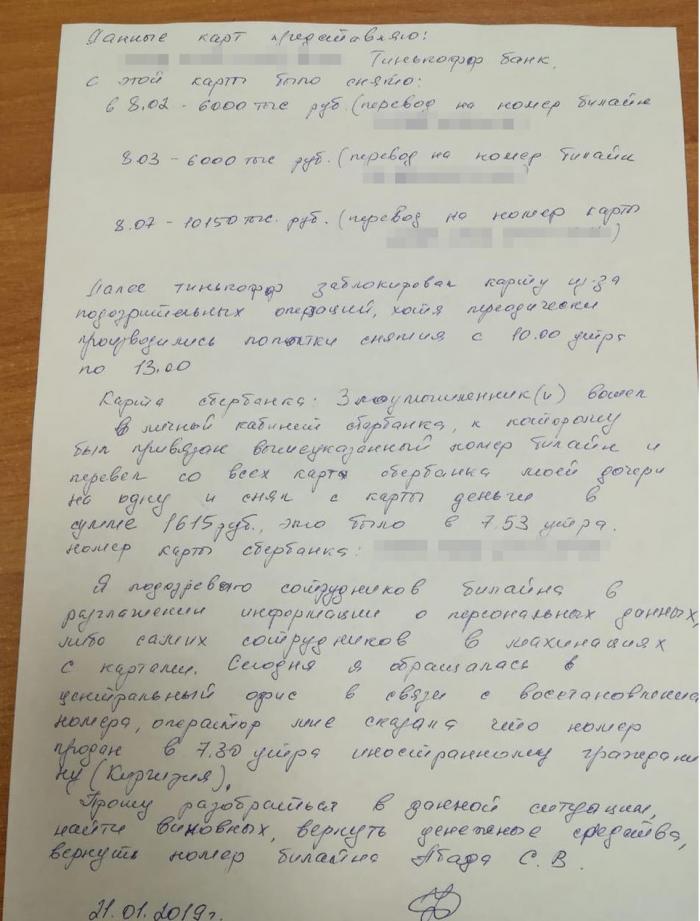 Данные карт предоставляю:
Тинькофф банк,
с этой карты было снято:
в 8.02 - 6000 тыс руб. (перевод на номер билайн
8.03 - 6000 тыс руб. (перевод на номер билайн
)
8.07 - 10150 тыс. руб. (перевод на номер карты
)
Далее тинькофф заблокировал карту из-за
подозрительных операций, хотя периодически
производились попытки снятия с 10.00 утра
по 13.00
Карта сбербанка: Злоумышленник(и) вошел
в личный кабинет сбербанка, к которому
был привязан вышеуказанный номер билайн и
перевел со всех карт сбербанка моей дочери
на одну и снял с карты деньги в
сумме 1615 руб., это было в 7.53 утра.
номер карты сбербанка:
Я подозреваю сотрудников билайна в
разглашении информации о персональных данных,
либо самих сотрудников в махинациях
с картами. Сегодня я обращалась в
центральный офис в связи с восстановлением
номера, оператор мне сказала что номер
продан в 7.30 утра иностранному граждани
ну (Киргизия).
Прошу разобраться в данной ситуации,
найти виновных, вернуть денежные средства,
вернуть номер билайна С.В.
21.01.2019г.